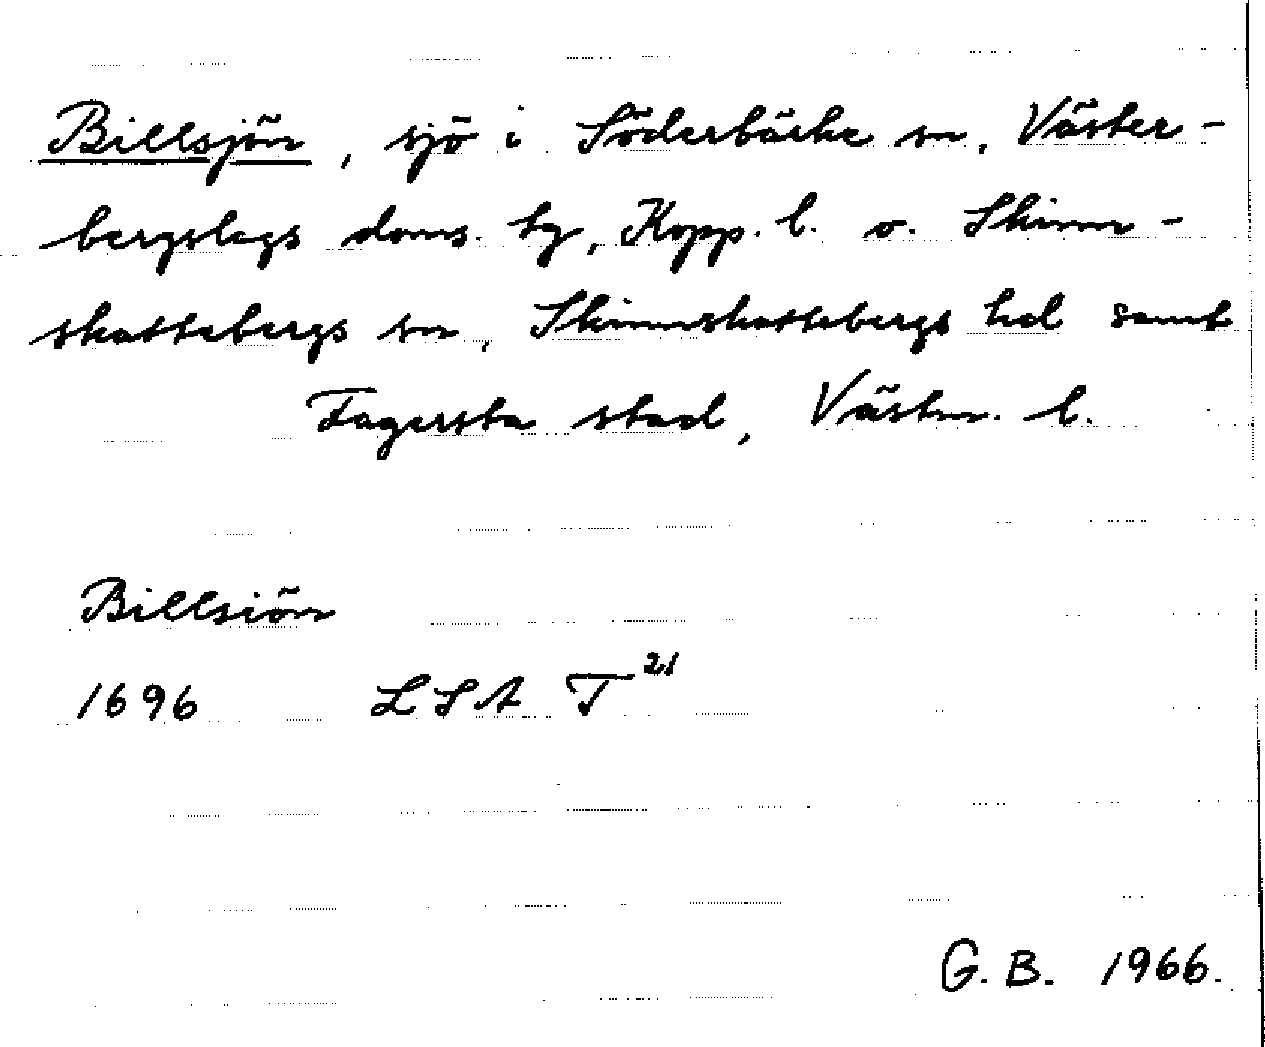 Billsjön, sjö i Söderbärke sn, Väster-
bergslags doms. tg, Kopp. l. o. Skinn-
skattebergs sn, Skinnskattebergs hd samt
Fagersta stad, Västm. l.
Billsiön
1696 LSA T 21
G. B. 1966.